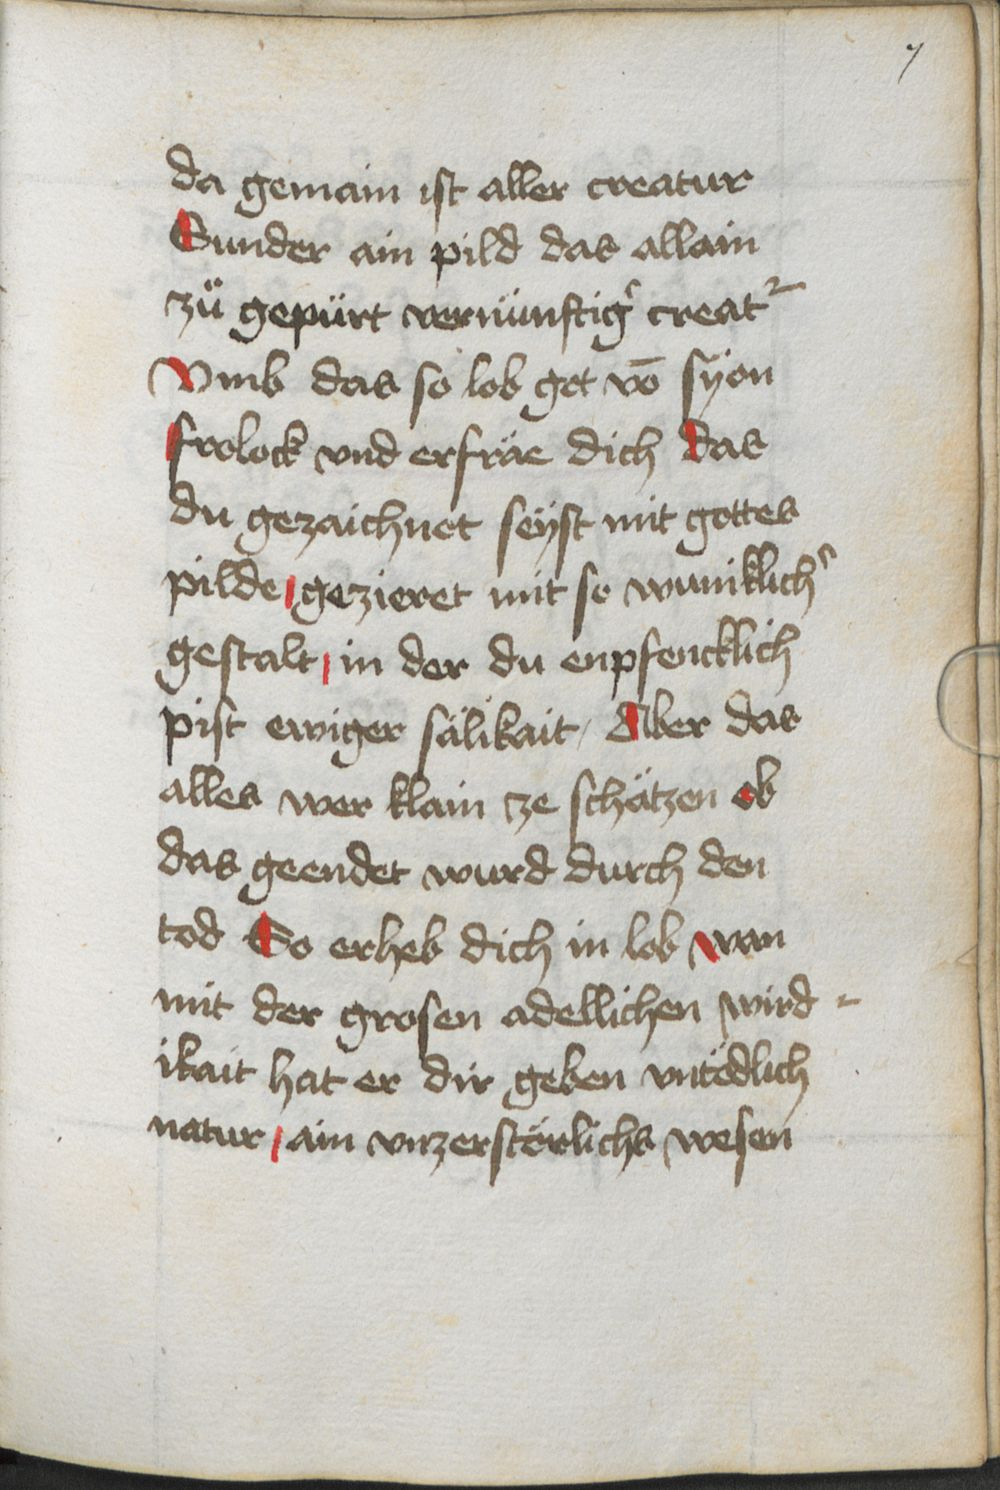 7
da gemain ist aller creatur
Sunder ain pild das allain
zů gepürt vernünftigꝰ creatᷣ
Vmb das so lob got võ syon
frolock vnd erfräe dich das
du gezaichnet seyst mit gottes
pilde / gezieret mit so wuniklichꝰ
gestalt / in der du enpfencklich
pist ewiger sälikait / Aber das
alles wer klain ze schätzen ob
das geendet wurd durch den
tod So erheb dich in lob wan
mit der grosen adellichen wird-
ikait hat er dir geben vntödlich
natur / ain vnzerstörlichs wesen